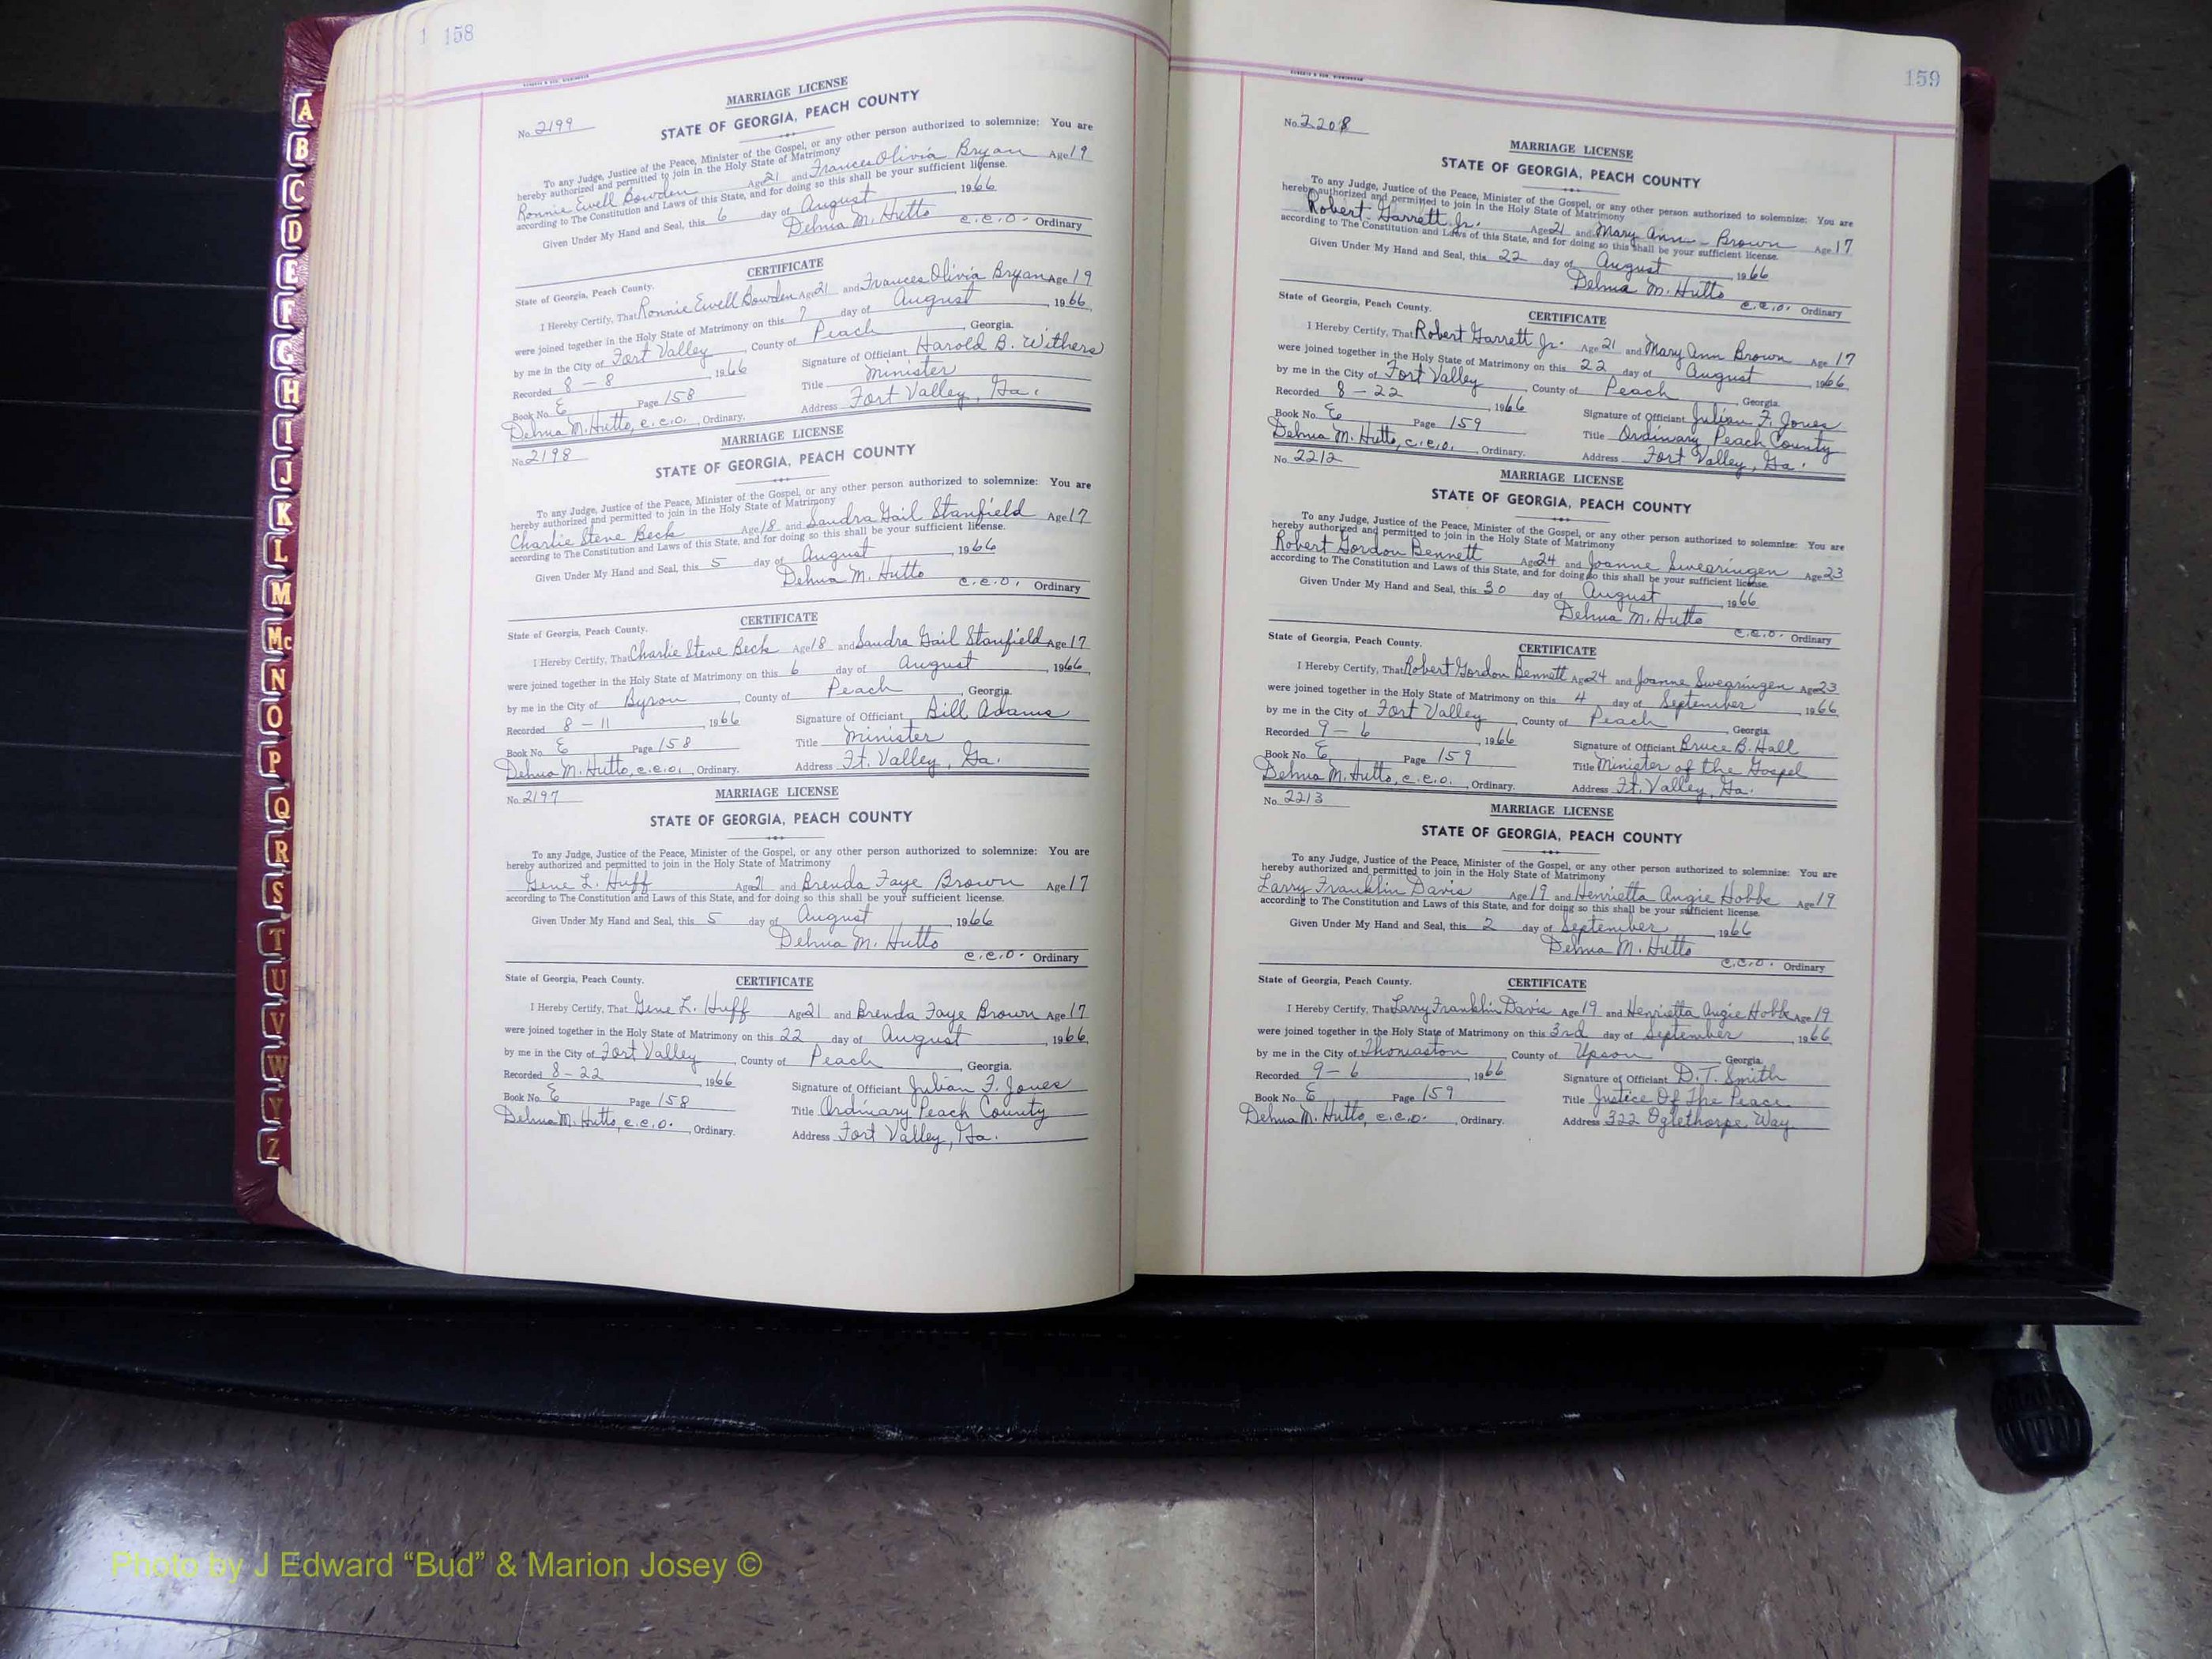 1 158
MARRIAGE LICENSE
No. 2199
STATE OF GEORGIA, PEACH COUNTY
To any Judge, Justice of the Peace, Minister of the Gospel, or any other person authorized to solemnize: You are
hereby authorized and permitted to join in the Holy State of Matrimony
Ronnie Ewell Bowden Age 21 and Frances Olivia Bryan Age 19
according to The Constitution and Laws of this State, and for doing so this shall be your sufficient license.
Given Under My Hand and Seal, this 6 day of August 1966
Delma M. Hutto
C.C.O. Ordinary
CERTIFICATE
State of Georgia, Peach County.
I Hereby Certify, That Ronnie Ewell Bowden Age 21 and Frances Olivia Bryan Age 19
were joined together in the Holy State of Matrimony on this 7 day of August, 1966
by me in the City of Fort Valley, County of Peach, Georgia.
Recorded 8-8, 1966 Signature of Officiant Harold B. Withers
Book No. E Page 158 Title Minister
Delma M. Hutto, C.C.O., Ordinary. Address Fort Valley, Ga.
MARRIAGE LICENSE
No. 2198
STATE OF GEORGIA, PEACH COUNTY
To any Judge, Justice of the Peace, Minister of the Gospel, or any other person authorized to solemnize: You are
hereby authorized and permitted to join in the Holy State of Matrimony
Charlie Steve Beck Age 18 and Sandra Gail Stanfield Age 17
according to The Constitution and Laws of this State, and for doing so this shall be your sufficient license.
Given Under My Hand and Seal, this 5 day of August, 1966
Delma M. Hutto
C.C.O. Ordinary
CERTIFICATE
State of Georgia, Peach County.
I Hereby Certify, That Charlie Steve Beck Age 18 and Sandra Gail Stanfield Age 17
were joined together in the Holy State of Matrimony on this 6 day of August, 1966
by me in the City of Byron, County of Peach, Georgia
Recorded 8-11, 1966 Signature of Officiant Bill Adams
Book No. E Page 158 Title Minister
Delma M. Hutto, C.C.O., Ordinary. Address Ft. Valley, Ga.
No. 2197
MARRIAGE LICENSE
STATE OF GEORGIA, PEACH COUNTY
To any Judge, Justice of the Peace, Minister of the Gospel, or any other person authorized to solemnize: You are
hereby authorized and permitted to join in the Holy State of Matrimony
Gene L. Huff Age 21 and Brenda Faye Brown Age 17
according to The Constitution and Laws of this State, and for doing so this shall be your sufficient license.
Given Under My Hand and Seal, this 5 day of August, 1966
Delma M. Hutto
C.C.O. Ordinary
State of Georgia, Peach County. CERTIFICATE
I Hereby Certify, That Gene L. Huff Age 21 and Brenda Faye Brown Age 17
were joined together in the Holy State of Matrimony on this 22 day of August, 1966
by me in the City of Fort Valley, County of Peach, Georgia.
Recorded 8-22, 1966 Signature of Officiant Julian F. Jones
Book No. E Page 158 Title Ordinary Peach County
Delma M. Hutto, C.C.O., Ordinary. Address Fort Valley, Ga.
159
No. 2208
MARRIAGE LICENSE
STATE OF GEORGIA, PEACH COUNTY
To any Judge, Justice of the Peace, Minister of the Gospel, or any other person authorized to solemnize: You are
hereby authorized and permitted to join in the Holy State of Matrimony
Robert Garrett Jr. Age 21 and Mary Ann Brown Age 17
according to The Constitution and Laws of this State, and for doing so this shall be your sufficient license.
Given Under My Hand and Seal, this 22 day of August, 1966
Delma M. Hutto
C.C.O. Ordinary
State of Georgia, Peach County.
CERTIFICATE
I Hereby Certify, That Robert Garrett Jr. Age 21 and Mary Ann Brown Age 17
were joined together in the Holy State of Matrimony on this 22 day of August, 1966
by me in the City of Fort Valley, County of Peach, Georgia.
Recorded 8-22, 1966 Signature of Officiant Julian F. Jones
Book No. E Page 159 Title Ordinary Peach County
Delma M. Hutto, C.C.O., Ordinary. Address Fort Valley, Ga.
No. 2212
MARRIAGE LICENSE
STATE OF GEORGIA, PEACH COUNTY
To any Judge, Justice of the Peace, Minister of the Gospel, or any other person authorized to solemnize: You are
hereby authorized and permitted to join in the Holy State of Matrimony
Robert Gordon Bennett Age 24 and Joanne Swearingen Age 23
according to The Constitution and Laws of this State, and for doing so this shall be your sufficient license.
Given Under My Hand and Seal, this 30 day of August, 1966
Delma M. Hutto
C.C.O. Ordinary
State of Georgia, Peach County.
CERTIFICATE
I Hereby Certify, That Robert Gordon Bennett Age 24 and Joanne Swearingen Age 23
were joined together in the Holy State of Matrimony on this 4 day of September, 1966
by me in the City of Fort Valley, County of Peach, Georgia
Recorded 9-6, 1966 Signature of Officiant Bruce B. Hall
Book No. E Page 159 Title Minister of the Gospel
Delma M. Hutto, C.C.O., Ordinary. Address Ft. Valley, Ga.
No. 2213
MARRIAGE LICENSE
STATE OF GEORGIA, PEACH COUNTY
To any Judge, Justice of the Peace, Minister of the Gospel, or any other person authorized to solemnize: You are
hereby authorized and permitted to join in the Holy State of Matrimony
Larry Franklin Davis Age 19 and Henrietta Angie Hobbs Age 19
according to The Constitution and Laws of this State, and for doing so this shall be your sufficient license.
Given Under My Hand and Seal, this 2 day of September, 1966
Delma M. Hutto
C.C.O. Ordinary
State of Georgia, Peach County. CERTIFICATE
I Hereby Certify, That Larry Franklin Davis Age 19 and Henrietta Angie Hobbs Age 19
were joined together in the Holy State of Matrimony on this 3rd day of September, 1966
by me in the City of Thomaston, County of Upson, Georgia
Recorded 9-6, 1966 Signature of Officiant D.T. Smith
Book No. E Page 159 Title Justice Of The Peace
Delma M. Hutto, C.C.O., Ordinary. Address 322 Oglethorpe Way
A
B
C
D
E
F
G
H
I
J
K
L
M
Mc
N
O
P
Q
R
S
T
U
V
W
Y
Z
Photo by J Edward “Bud” & Marion Josey ©